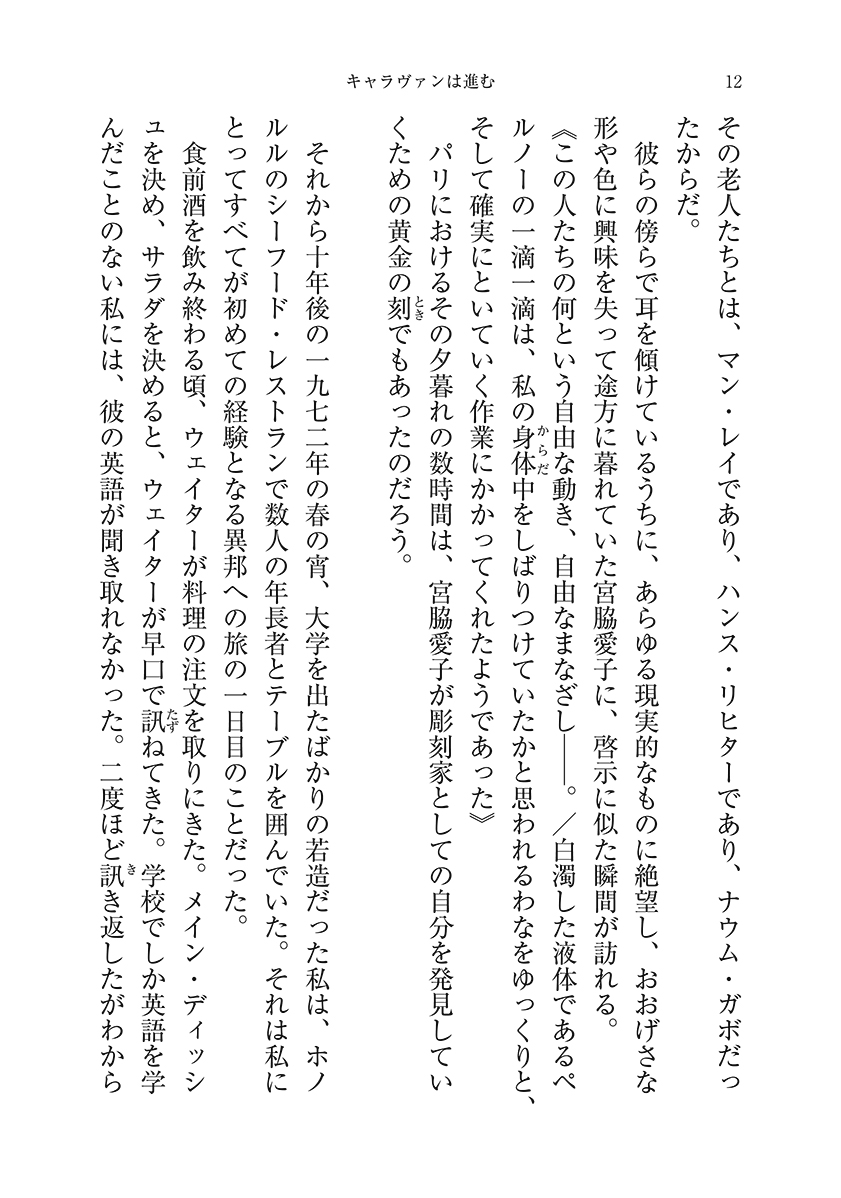 キャラヴァンは進む
12
その老人たちとは、マン・レイであり、ハンス・リヒターであり、ナウム・ガボだっ
たからだ。
　彼らの傍らで耳を傾けているうちに、あらゆる現実的なものに絶望し、おおげさな
形や色に興味を失って途方に暮れていた宮脇愛子に、啓示に似た瞬間が訪れる。
《この人たちの何という自由な動き、自由なまなざし――。／白濁した液体であるペ
ルノーの一滴一滴は、私の身体中をしばりつけていたかと思われるわなをゆっくりと、
そして確実にといていく作業にかかってくれたようであった》
　パリにおけるその夕暮れの数時間は、宮脇愛子が彫刻家としての自分を発見してい
くための黄金の刻でもあったのだろう。
　それから十年後の一九七二年の春の宵、大学を出たばかりの若造だった私は、ホノ
ルルのシーフード・レストランで数人の年長者とテーブルを囲んでいた。それは私に
とってすべてが初めての経験となる異邦への旅の一日目のことだった。
　食前酒を飲み終わる頃、ウェイターが料理の注文を取りにきた。メイン・ディッシ
ュを決め、サラダを決めると、ウェイターが早口で訊ねてきた。学校でしか英語を学
んだことのない私には、彼の英語が聞き取れなかった。二度ほど訊き返したがわから
からだ
とき
たず
き